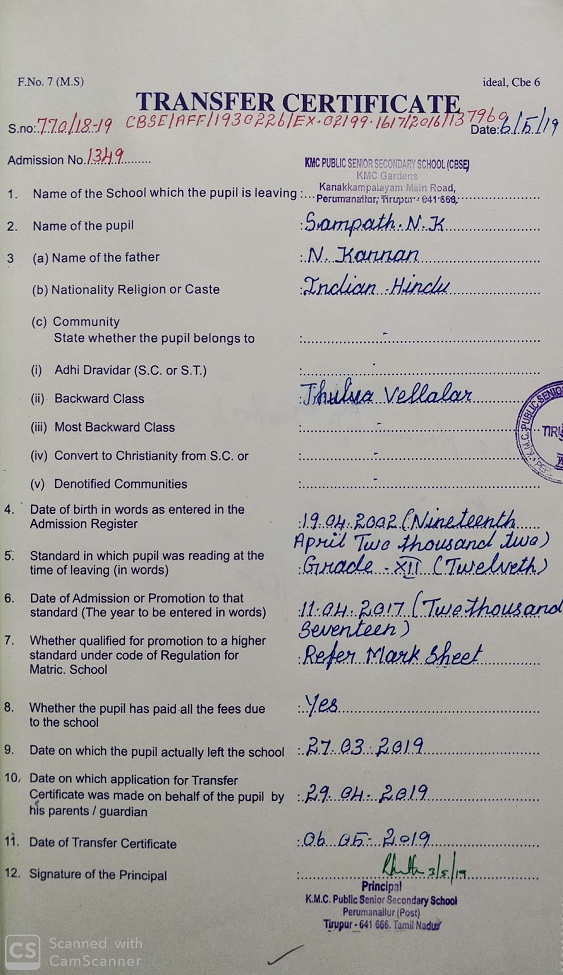 F.No. 7 (M.S) ideal, Cbe 6
TRANSFER CERTIFICATE
S.no: 770/18-19 CBSE/AFF/1930226/EX-02199-1617/2016/137969 Date: 6/5/19
Admission No. 1349
KMC PUBLIC SENIOR SECONDARY SCHOOL (CBSE)
KMC Gardens
1. Name of the School which the pupil is leaving : Kanakkampalayam Main Road,
Perumanallur, Tirupur - 641 666.
2. Name of the pupil : Sampath. N.K
3 (a) Name of the father : N. Kannan
(b) Nationality Religion or Caste : Indian - Hindu
(c) Community
State whether the pupil belongs to : -
(i) Adhi Dravidar (S.C. or S.T.) : -
(ii) Backward Class Thuluva Vellalar
(iii) Most Backward Class : -
(iv) Convert to Christianity from S.C. or : -
(v) Denotified Communities : -
4. Date of birth in words as entered in the
Admission Register : 19.04.2002 (Nineteenth
April Two thousand two)
5. Standard in which pupil was reading at the
time of leaving (in words) : Grade - XII (Twelveth)
6. Date of Admission or Promotion to that
standard (The year to be entered in words) : 11.04.2017 (Two thousand
Seventeen)
7. Whether qualified for promotion to a higher
standard under code of Regulation for : Refer Mark Sheet
Matric. School
8. Whether the pupil has paid all the fees due : Yes
to the school
9. Date on which the pupil actually left the school : 27.03.2019
10. Date on which application for Transfer
Certificate was made on behalf of the pupil by : 29.04.2019
his parents / guardian
11. Date of Transfer Certificate : 06.05.2019
12. Signature of the Principal : 3/5/19
Principal
K.M.C. Public Senior Secondary School
Perumanallur (Post)
Tirupur - 641 666. Tamil Nadu
K.M.C. PUBLIC SENIOR
CS Scanned with
CamScanner